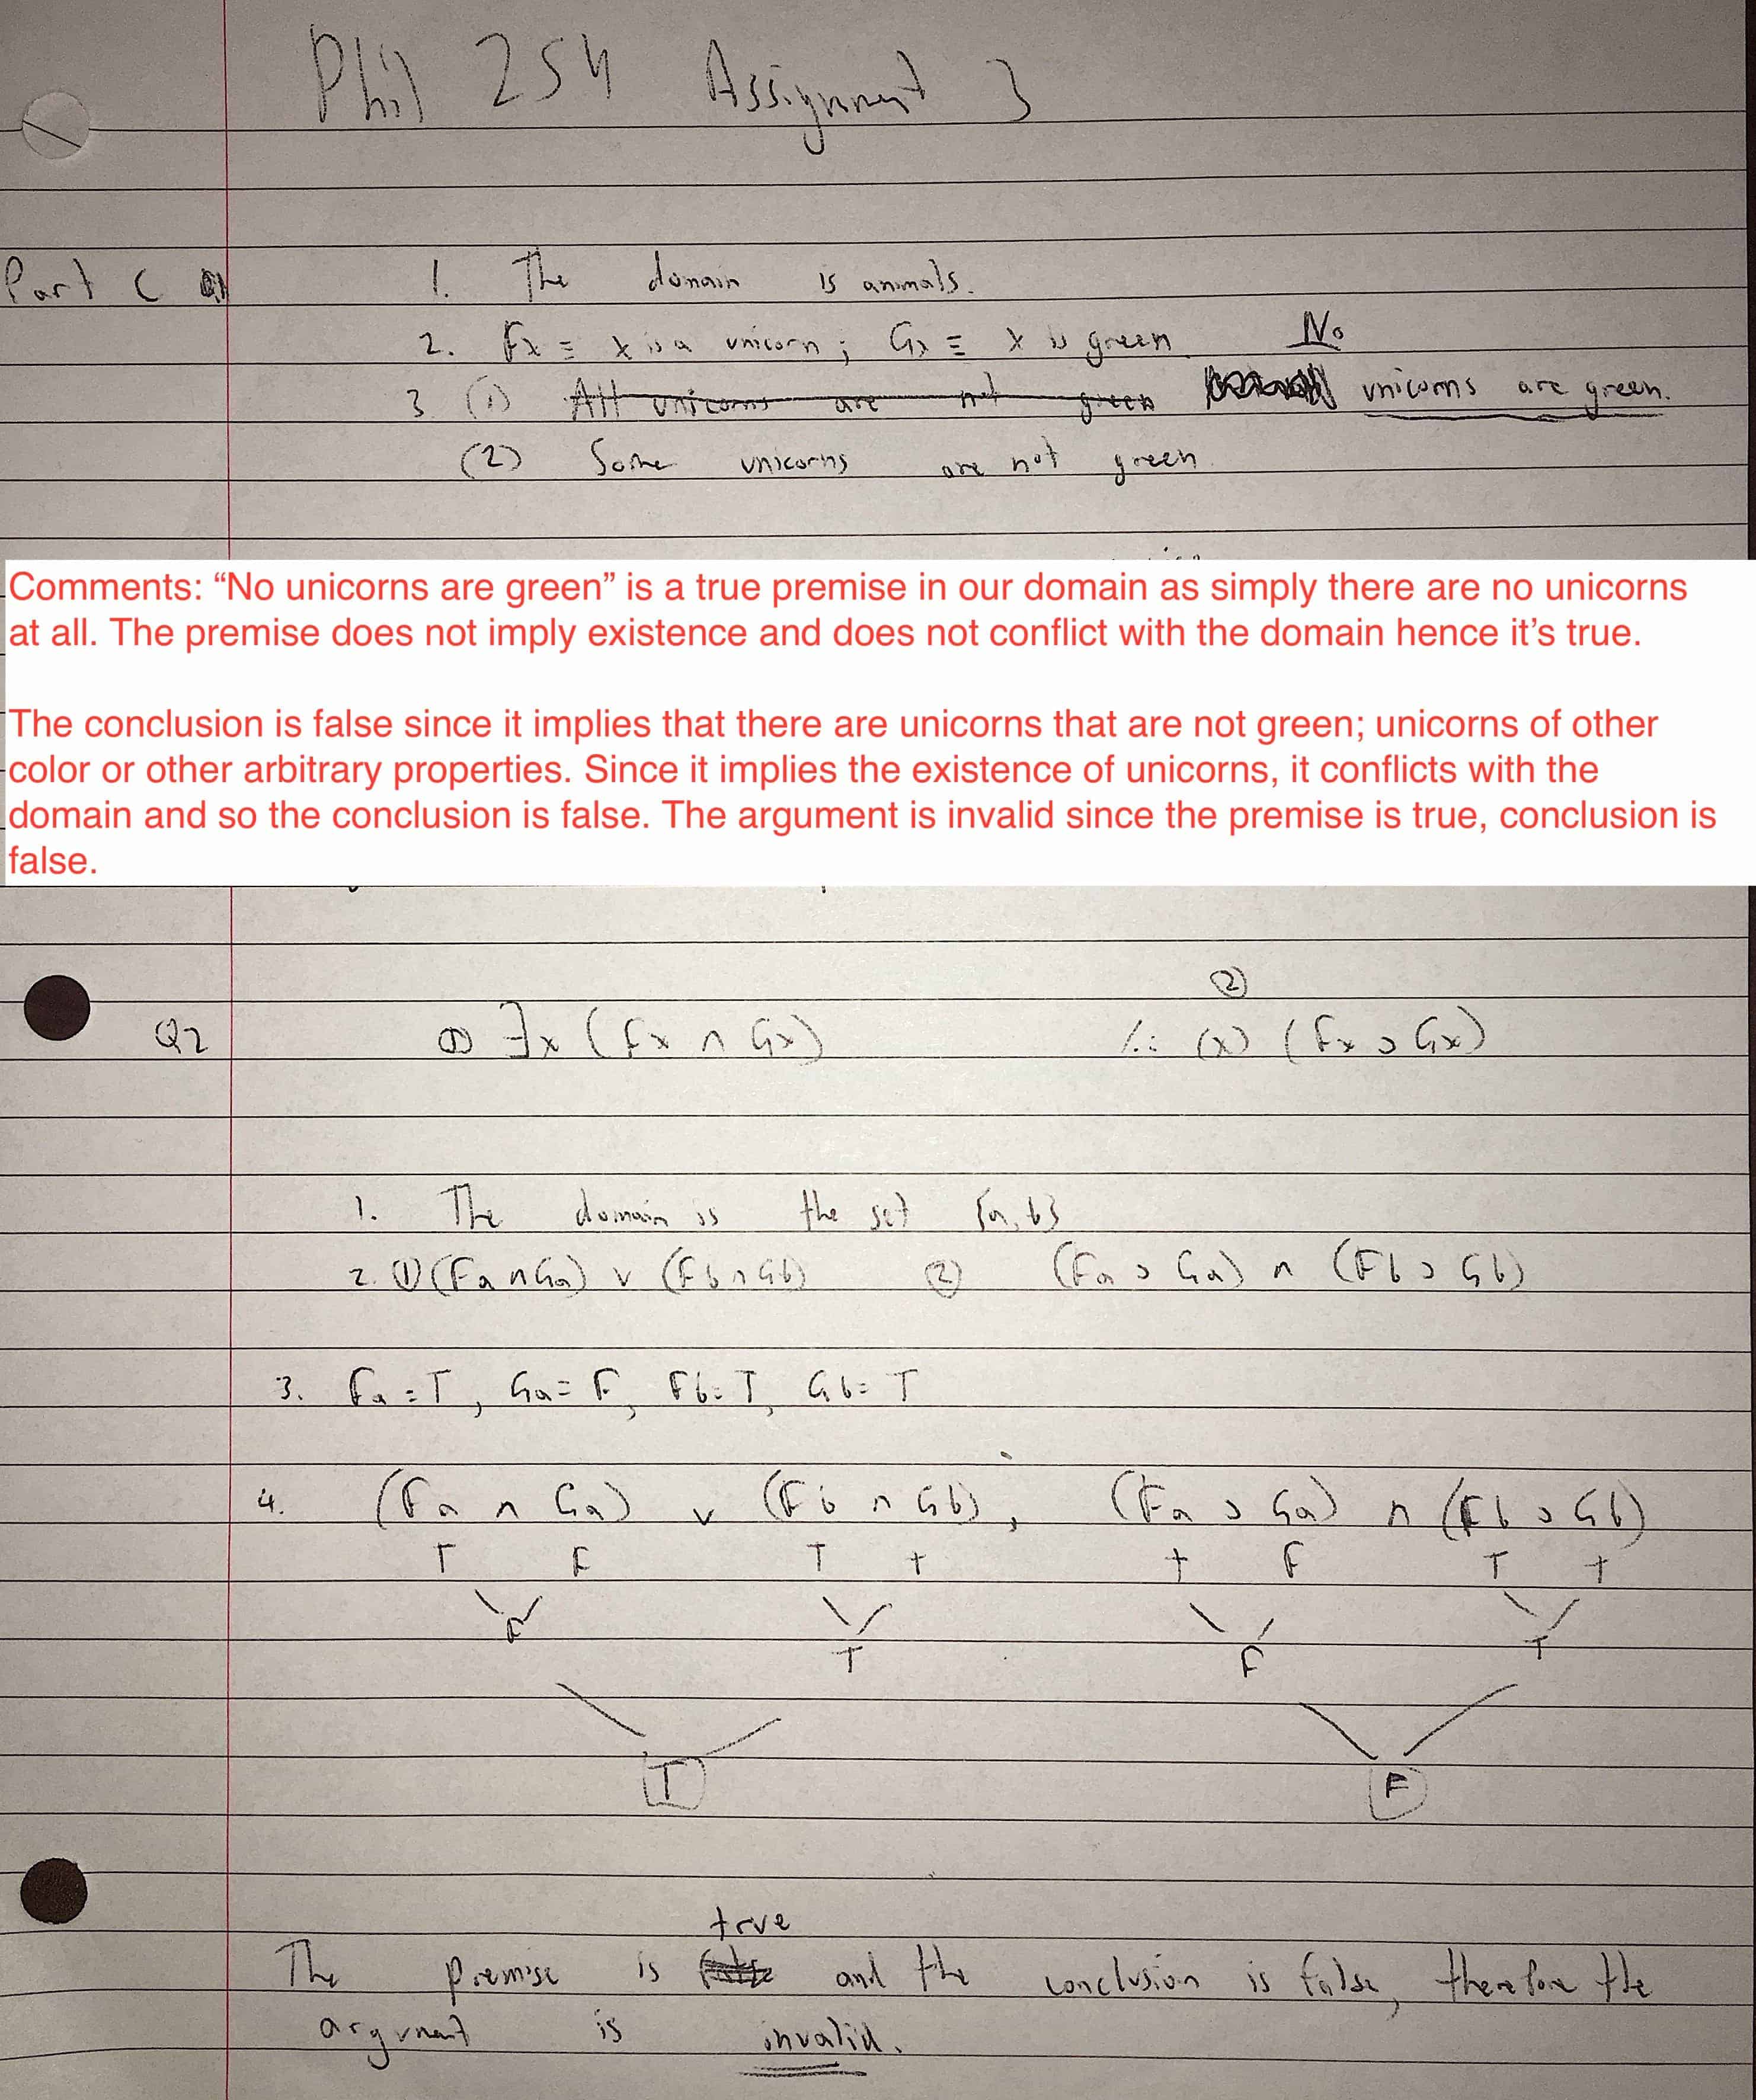 Phil 254 Assignment 3
Part C Q1 1. The domain is animals.
2. Fx ≡ x is a unicorn; Gx ≡ x is green.
3 (1) All unicorns are not green No unicorns are green.
(2) Some unicorns are not green.
Comments: “No unicorns are green” is a true premise in our domain as simply there are no unicorns
at all. The premise does not imply existence and does not conflict with the domain hence it’s true.
The conclusion is false since it implies that there are unicorns that are not green; unicorns of other
color or other arbitrary properties. Since it implies the existence of unicorns, it conflicts with the
domain and so the conclusion is false. The argument is invalid since the premise is true, conclusion is
false.
②
Q2 ① ∃x (Fx ∩ Gx) /∴ (x) (Fx ⊃ Gx)
1. The domain is the set {a, b}
2. ① (Fa ∩ Ga) v (Fb ∩ Gb) ② (Fa ⊃ Ga) ∩ (Fb ⊃ Gb)
3. Fa = T, Ga = F, Fb = T, Gb = T
4. (Fa ∩ Ga) v (Fb ∩ Gb), (Fa ⊃ Ga) ∩ (Fb ⊃ Gb)
T F T T T F T T
F T F T
T F
true
The premise is false and the conclusion is false, therefore the
argument is invalid.